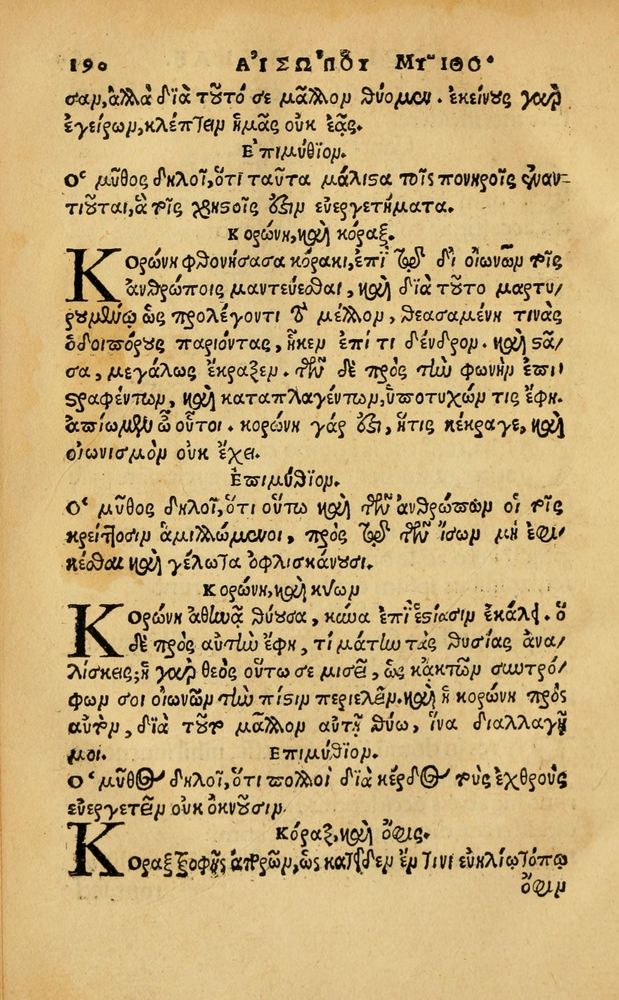 190 ΑἸΣΩ´ΠΟΥ ΜΥ῀ΘΟΙ
σαν, ἀλλὰ διὰ τοῦτό σε μᾶλλον θύομεν. ἐκείνους γὰρ
ἐγείρων, κλέπτειν ἡμᾶς οὐκ ἐᾷς.
Ἐπιμύθιον.
Ὁ μῦθος δηλοῖ, ὅτι ταῦτα μάλιστα τοῖς πονηροῖς ἐναν-
τιοῦται, ἃ τοῖς χρηστοῖς ἐστιν εὐεργετήματα.
Κορώνη, καὶ κόραξ.
Κορώνη φθονήσασα κόρακι, ἐπὶ τῷ δι οἰωνῶν τοῖς
ἀνθρώποις μαντεύεσθαι, καὶ διὰ τοῦτο μαρτυ-
ρουμένῳ ὡς προλέγοντι τὸ μέλλον, θεασαμένη τινὰς
ὁδοιπόρους παριόντας, ἧκεν ἐπί τι δένδρον. καὶ στᾶ-
σα, μεγάλως ἔκραξεν. τῶν δὲ πρὸς τὴν φωνὴν ἐπι-
στραφέντων, καὶ καταπλαγέντων, ὑποτυχών τις ἔφη.
ἀπίωμεν ὦ οὗτοι. κορώνη γάρ ἐστιν, ἥτις κέκραγε, καὶ
οἰωνισμὸν οὐκ ἔχει.
Ἐπιμύθιον.
Ὁ μῦθος δηλοῖ, ὅτι οὕτω καὶ τῶν ἀνθρώπων οἱ τοῖς
κρείττοσιν ἁμιλλώμενοι, πρὸς τῷ τῶν ἴσων μὴ ἐφι-
κέσθαι καὶ γέλωτα ὀφλισκάνουσι.
Κορώνη, καὶ κύων
Κορώνη ἀθηνᾷ θύουσα, κύνα ἐπὶ ἑστίασιν ἐκάλει. ὁ
δὲ πρὸς αὐτὴν ἔφη, τί μάτην τὰς θυσίας ἀνα-
λίσκεις; ἡ γὰρ θεὸς οὕτω σε μισεῖ, ὡς κἀκ τῶν συντρό-
φων σοι οἰωνῶν τὴν πίστιν περιελεῖν. καὶ ἡ κορώνη πρὸς
αὐτόν, διὰ τοῦτο μᾶλλον αὐτῇ θύω, ἵνα διαλλαγῇ
μοι. Ἐπιμύθιον.
Ὁ μῦθος δηλοῖ, ὅτι πολλοὶ διὰ κέρδος τοὺς ἐχθροὺς
εὐεργετεῖν οὐκ ὀκνοῦσιν.
Κόραξ, καὶ ὄφις.
Κόραξ τροφῆς ἀπορῶν, ὡς κατεῖδεν ἔν τινι εὐηλίῳ τόπῳ
ὄφιν